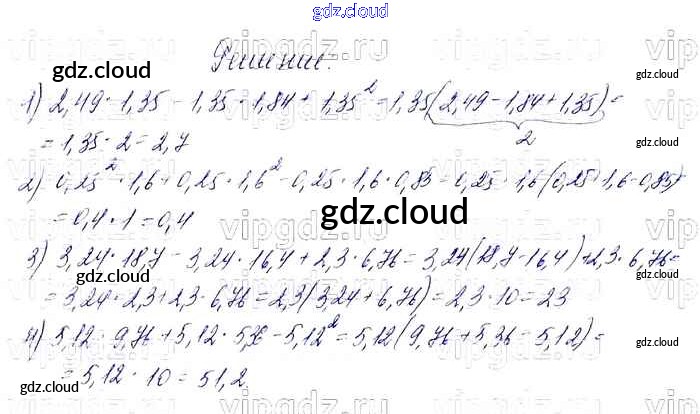 gdz.cloud
Решение.
1) 2,49 · 1,35 - 1,35 · 1,84 + 1,35² = 1,35(2,49 - 1,84 + 1,35) =
2
= 1,35 · 2 = 2,7
2) 0,25² · 1,6 + 0,25 · 1,6² - 0,25 · 1,6 · 0,85 = 0,25 · 1,6(0,25 + 1,6 - 0,85)
= 0,4 · 1 = 0,4
3) 3,24 · 18,7 - 3,24 · 16,4 + 2,3 · 6,76 = 3,24(18,7 - 16,4) + 2,3 · 6,76 =
= 3,24 · 2,3 + 2,3 · 6,76 = 2,3(3,24 + 6,76) = 2,3 · 10 = 23
4) 5,12 · 9,76 + 5,12 · - 5,12² = 5,12(9,76 + 5,36 - 5,12) =
= 5,12 · 10 = 51,2.
gdz.cloud
gdz.cloud
gdz.cloud
gdz.cloud
gdz.cloud
gdz.cloud
gdz.cloud
gdz.cloud
gdz.cloud
vipgdz.ru
vipgdz.ru
vipgdz.ru
vipgdz.ru